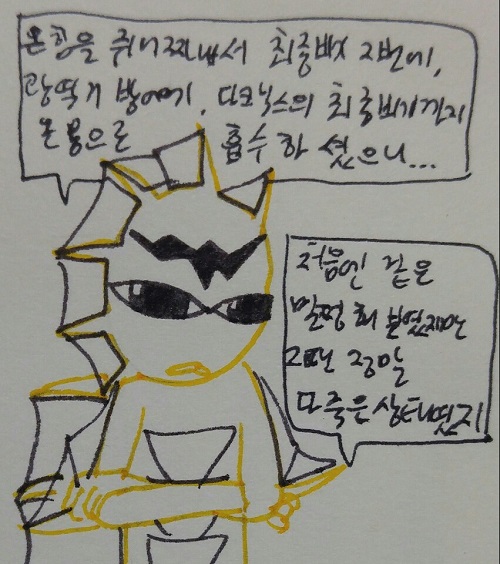 온힘을 쥐어짜내서 최종배 2번에,
광역기 방어에, 다크닉스의 최종비기까지
온몸으로 흡수하셨으니...
처음엔 같은
멀쩡해 보였지만
그땐 정말
다 죽은 상태였지